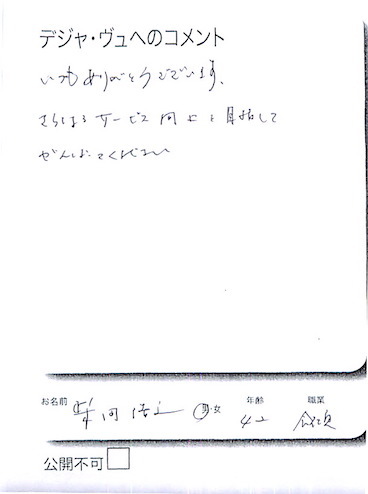 デジャ・ヴュへのコメント
いつもありがとうございます。
さらなるサービス向上を目指して
がんばってください
お名前 男・女 年齢 42 職業
公開不可